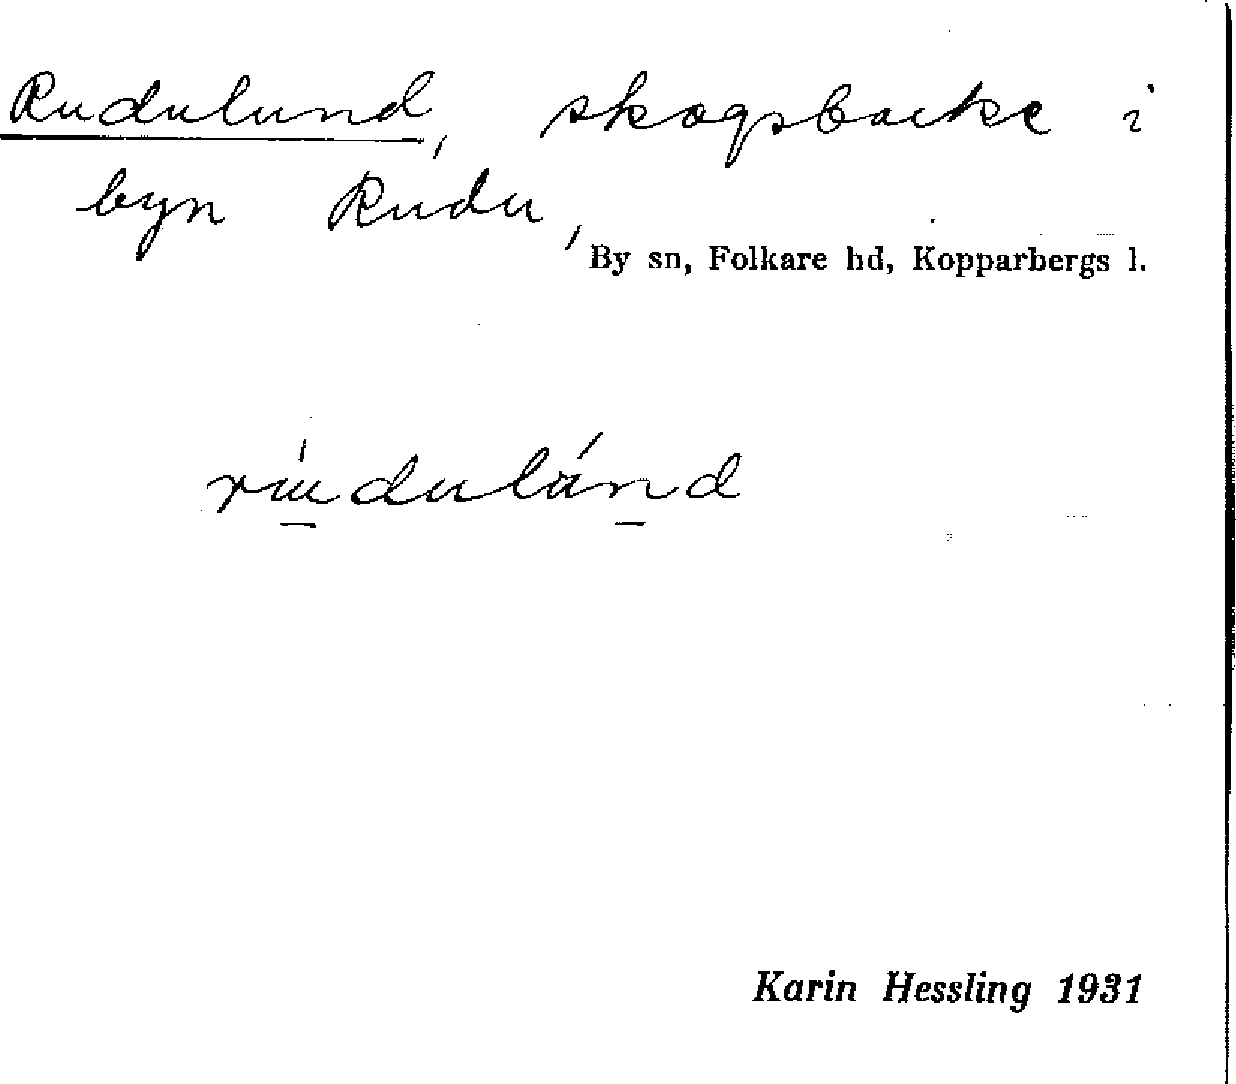 Rudulund, skogsbacke i
byn Rudu,
By sn, Folkare hd, Kopparbergs l.
Karin Hessling 1931